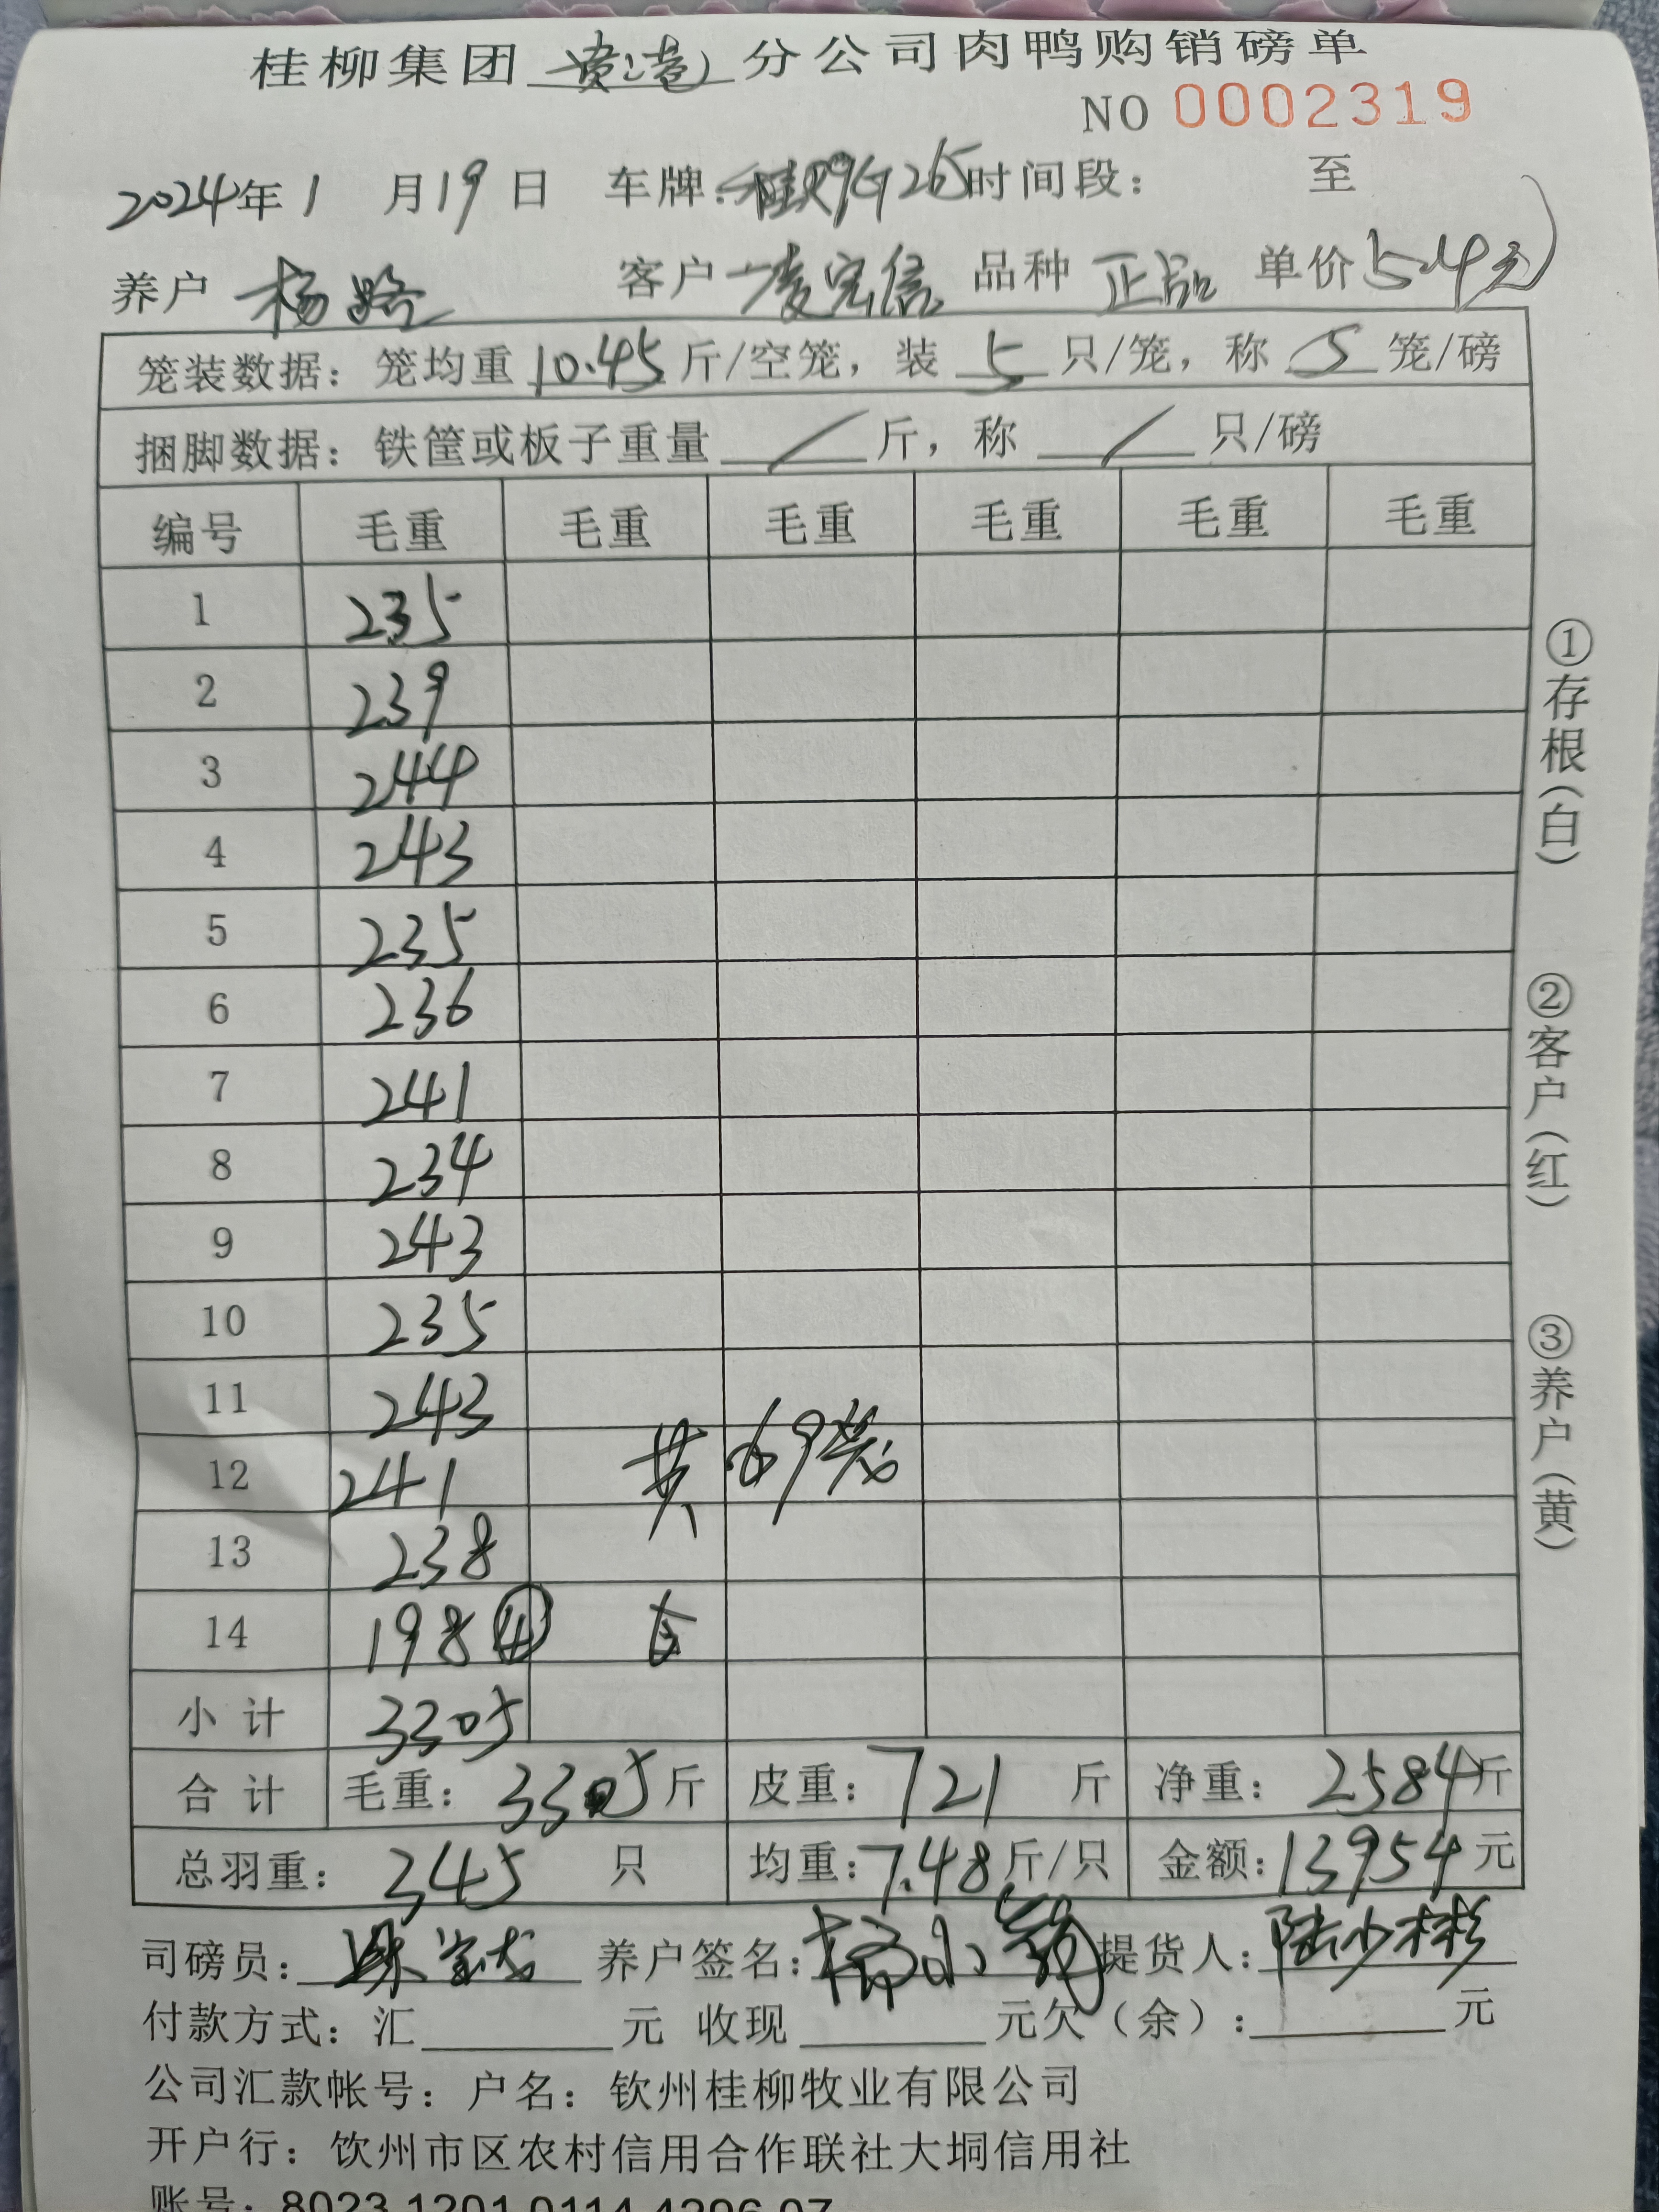 桂柳集团 贵港 分公司肉鸭购销磅单
NO 0002319
2024年1月19日 车牌: 时间段: 至
养户 杨路 客户 凌宪信 品种 正品 单价 5.4元
笼装数据: 笼均重 10.45 斤/空笼, 装 5 只/笼, 称 5 笼/磅
捆脚数据: 铁筐或板子重量 / 斤, 称 / 只/磅
编号 毛重 毛重 毛重 毛重 毛重 毛重
1 235
2 239
3 244
4 243
5 235
6 236
7 241
8 234
9 243
10 235
11 243
12 241 共69笼
13 238
14 198 ④
小计 3305
合计 毛重: 3305 斤 皮重: 721 斤 净重: 2584 斤
总羽重: 345 只 均重: 7.48 斤/只 金额: 13954 元
司磅员: 养户签名: 杨小 提货人: 陆少彬
付款方式: 汇 元 收现 元欠(余): 元
公司汇款帐号: 户名: 钦州桂柳牧业有限公司
开户行: 钦州市区农村信用合作联社大垌信用社
账号: 8023 1201 0114 4296 07
①存根(白)
②客户(红)
③养户(黄)